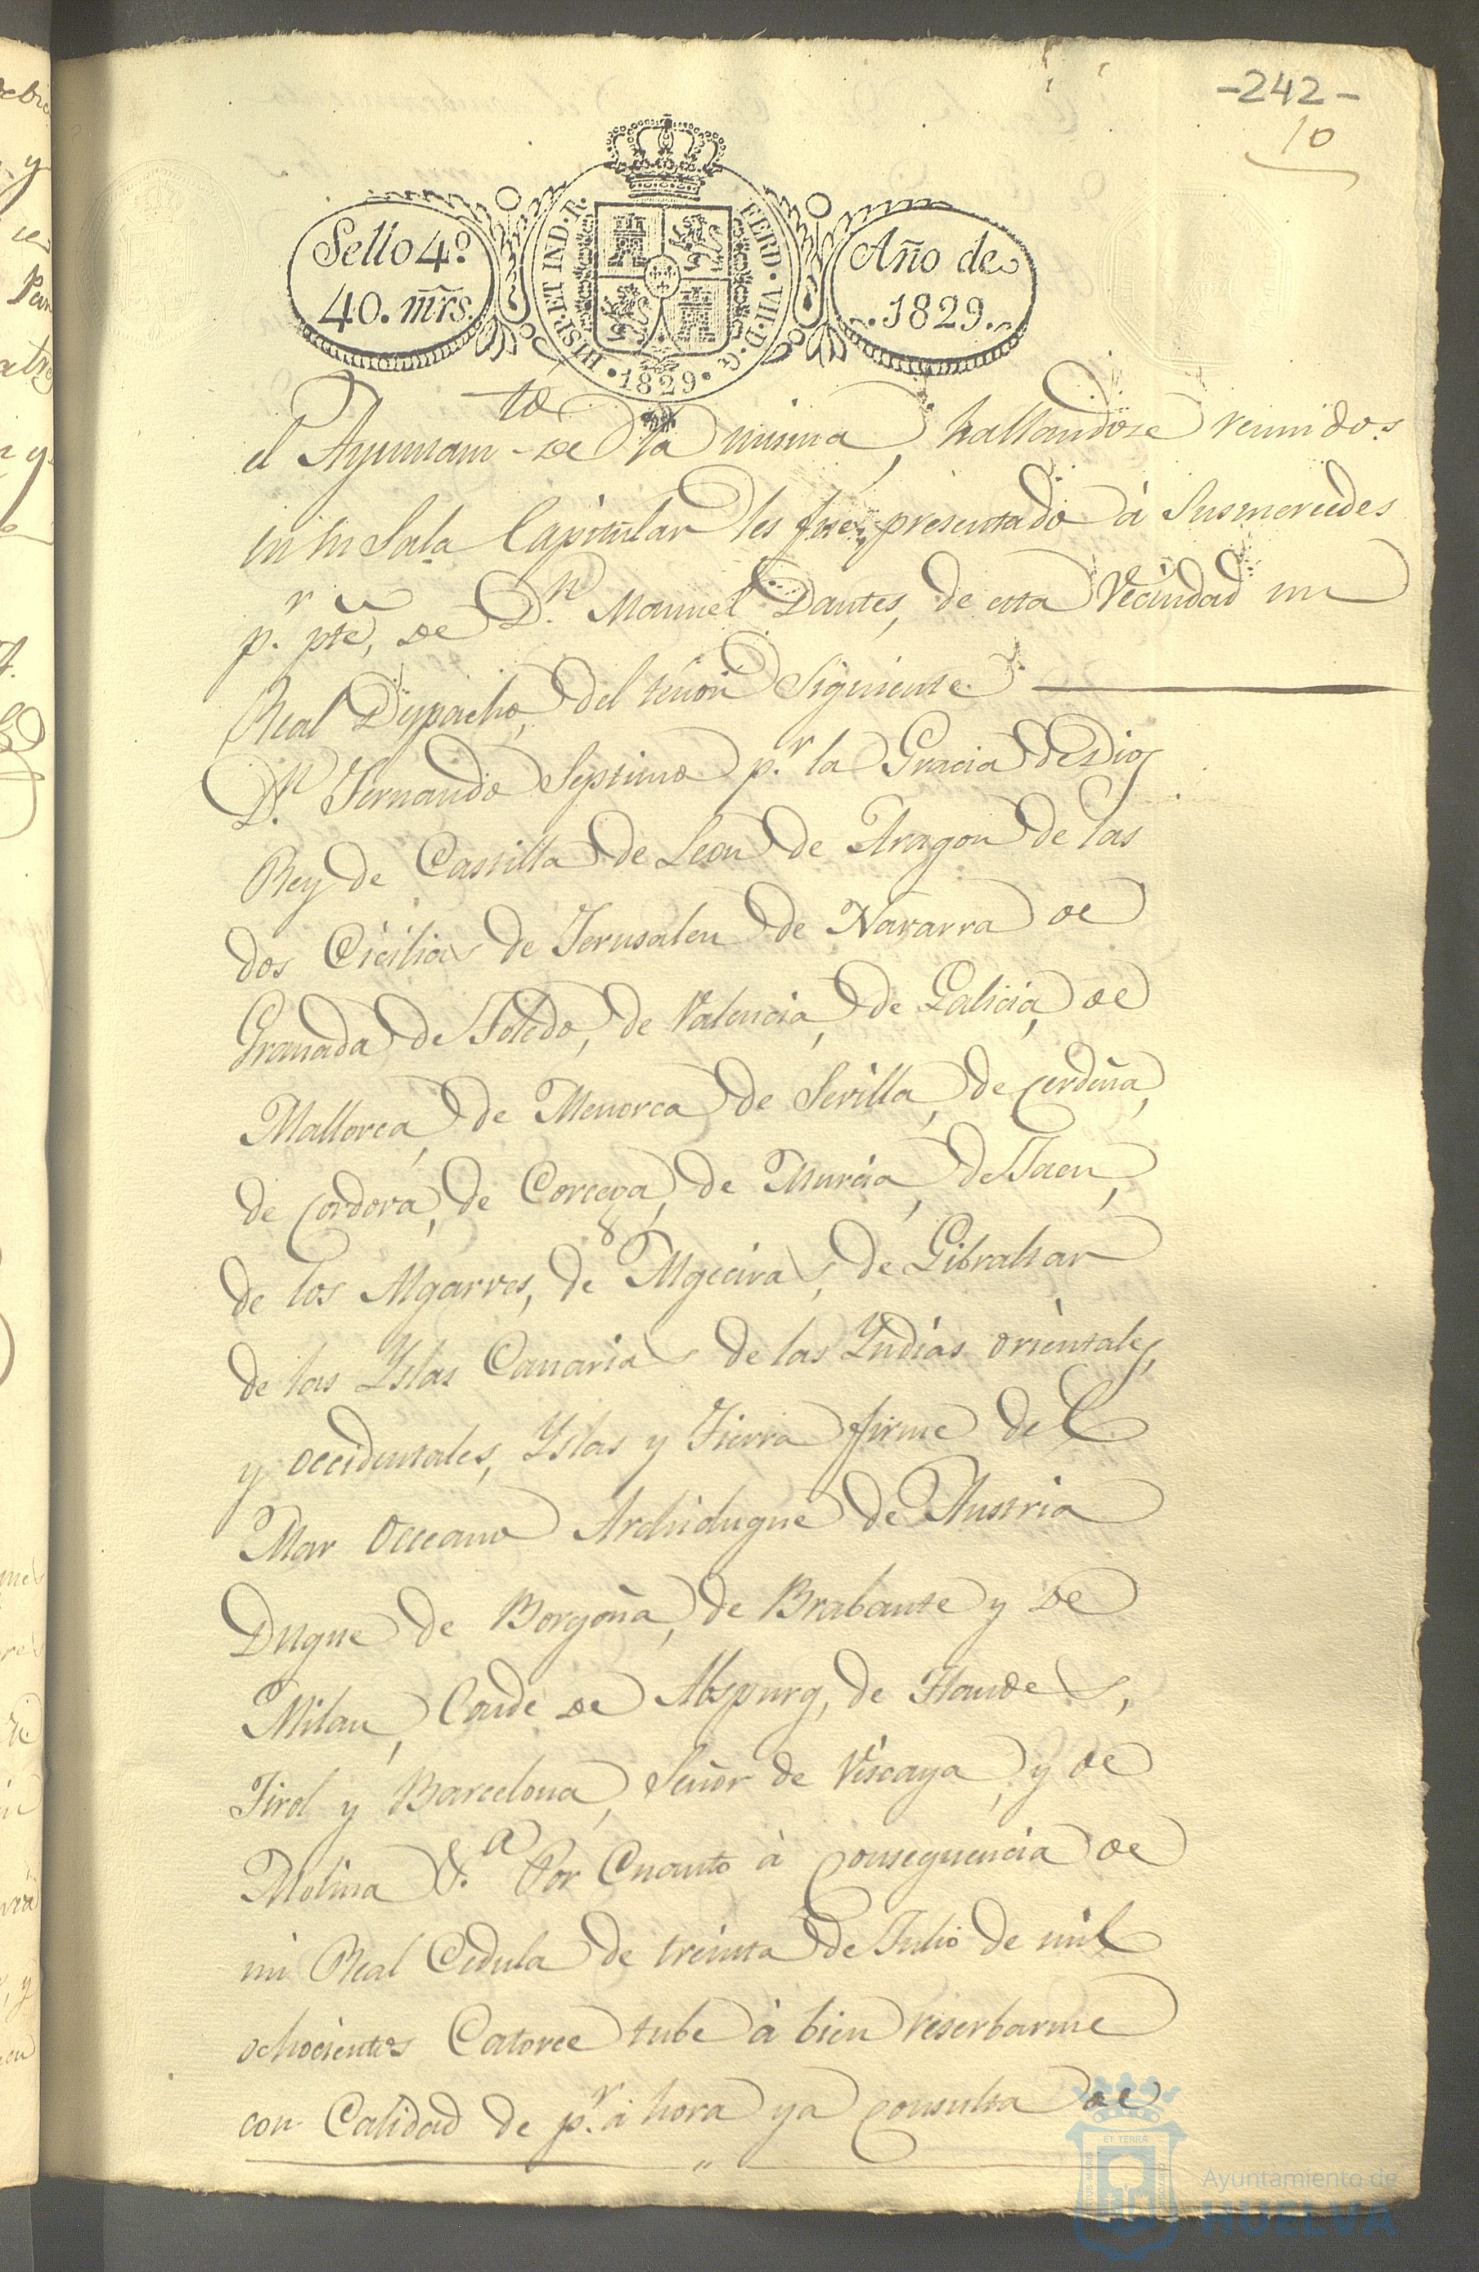 -242-
10
Sello 4.º
40. mrs.
HISP. ET IND. R.
FERD. VII. D. G.
1829
Año de
1829.
el Ayuntam.to de la misma, hallandose reunidos
en su Sala Capitular les fue presentado á Sus mercedes
p.r pte, de D.n Manuel Dantes, de esta Vecindad un
Real Despacho, del tenor Siguiente
D.n Fernando Septimo p.r la Gracia de Dios
Rey de Castilla de Leon de Aragon de las
dos Cicilias de Jerusalen de Navarra de
Granada de Toledo, de Valencia, de Galicia, de
Mallorca, de Menorca de Sevilla, de Cerdeña,
de Cordova, de Corcega, de Murcia, de Jaen,
de los Algarves, de Algeciras, de Gibraltar
de las Yslas Canarias de las Yndias orientales,
y occidentales, Yslas y Tierra firme del
Mar Occeano Archiduque de Austria
Duque de Borgoña, de Brabante y de
Milan, Conde de Abspurg, de Flandes,
Tirol y Barcelona, Señor de Viscaya, y de
Molina &.a Por Cuanto á Consequencia de
mi Real Cedula de treinta de Julio de mil
ochocientos Catorce tube á bien reserbarme
con Calidad de p.r a hora y a Consulta de
ET TERRA
Ayuntamiento de
HUELVA